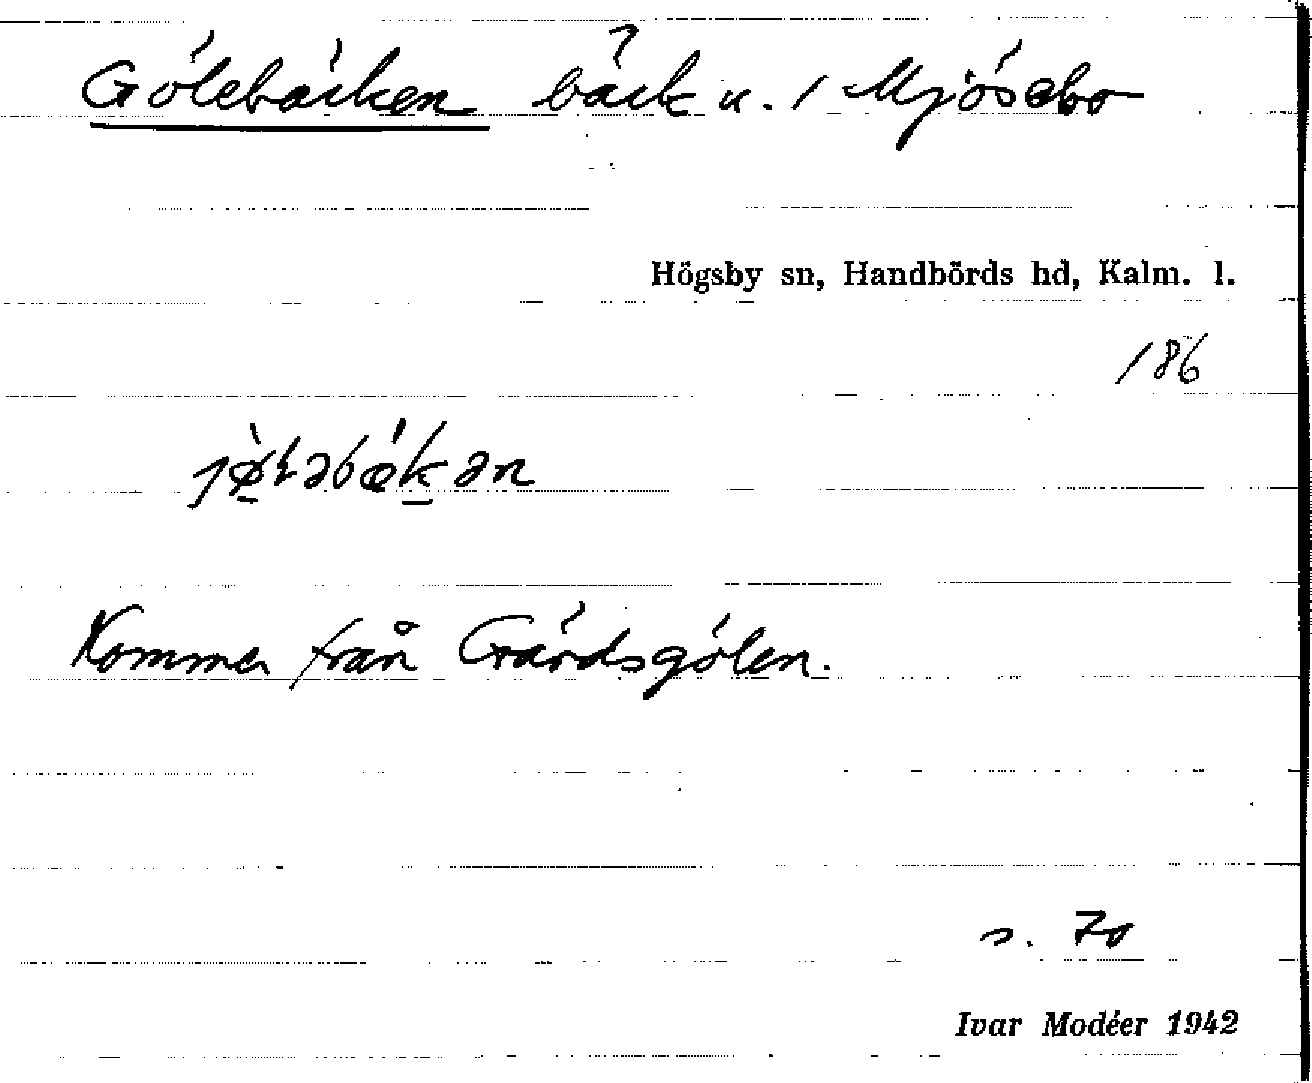 Gölebäcken bäck u. / Mjösebo
Högsby sn, Handbörds hd, Kalm. l.
186
Kommer från Gärdsgölen.
s. 70
Ivar Modéer 1942